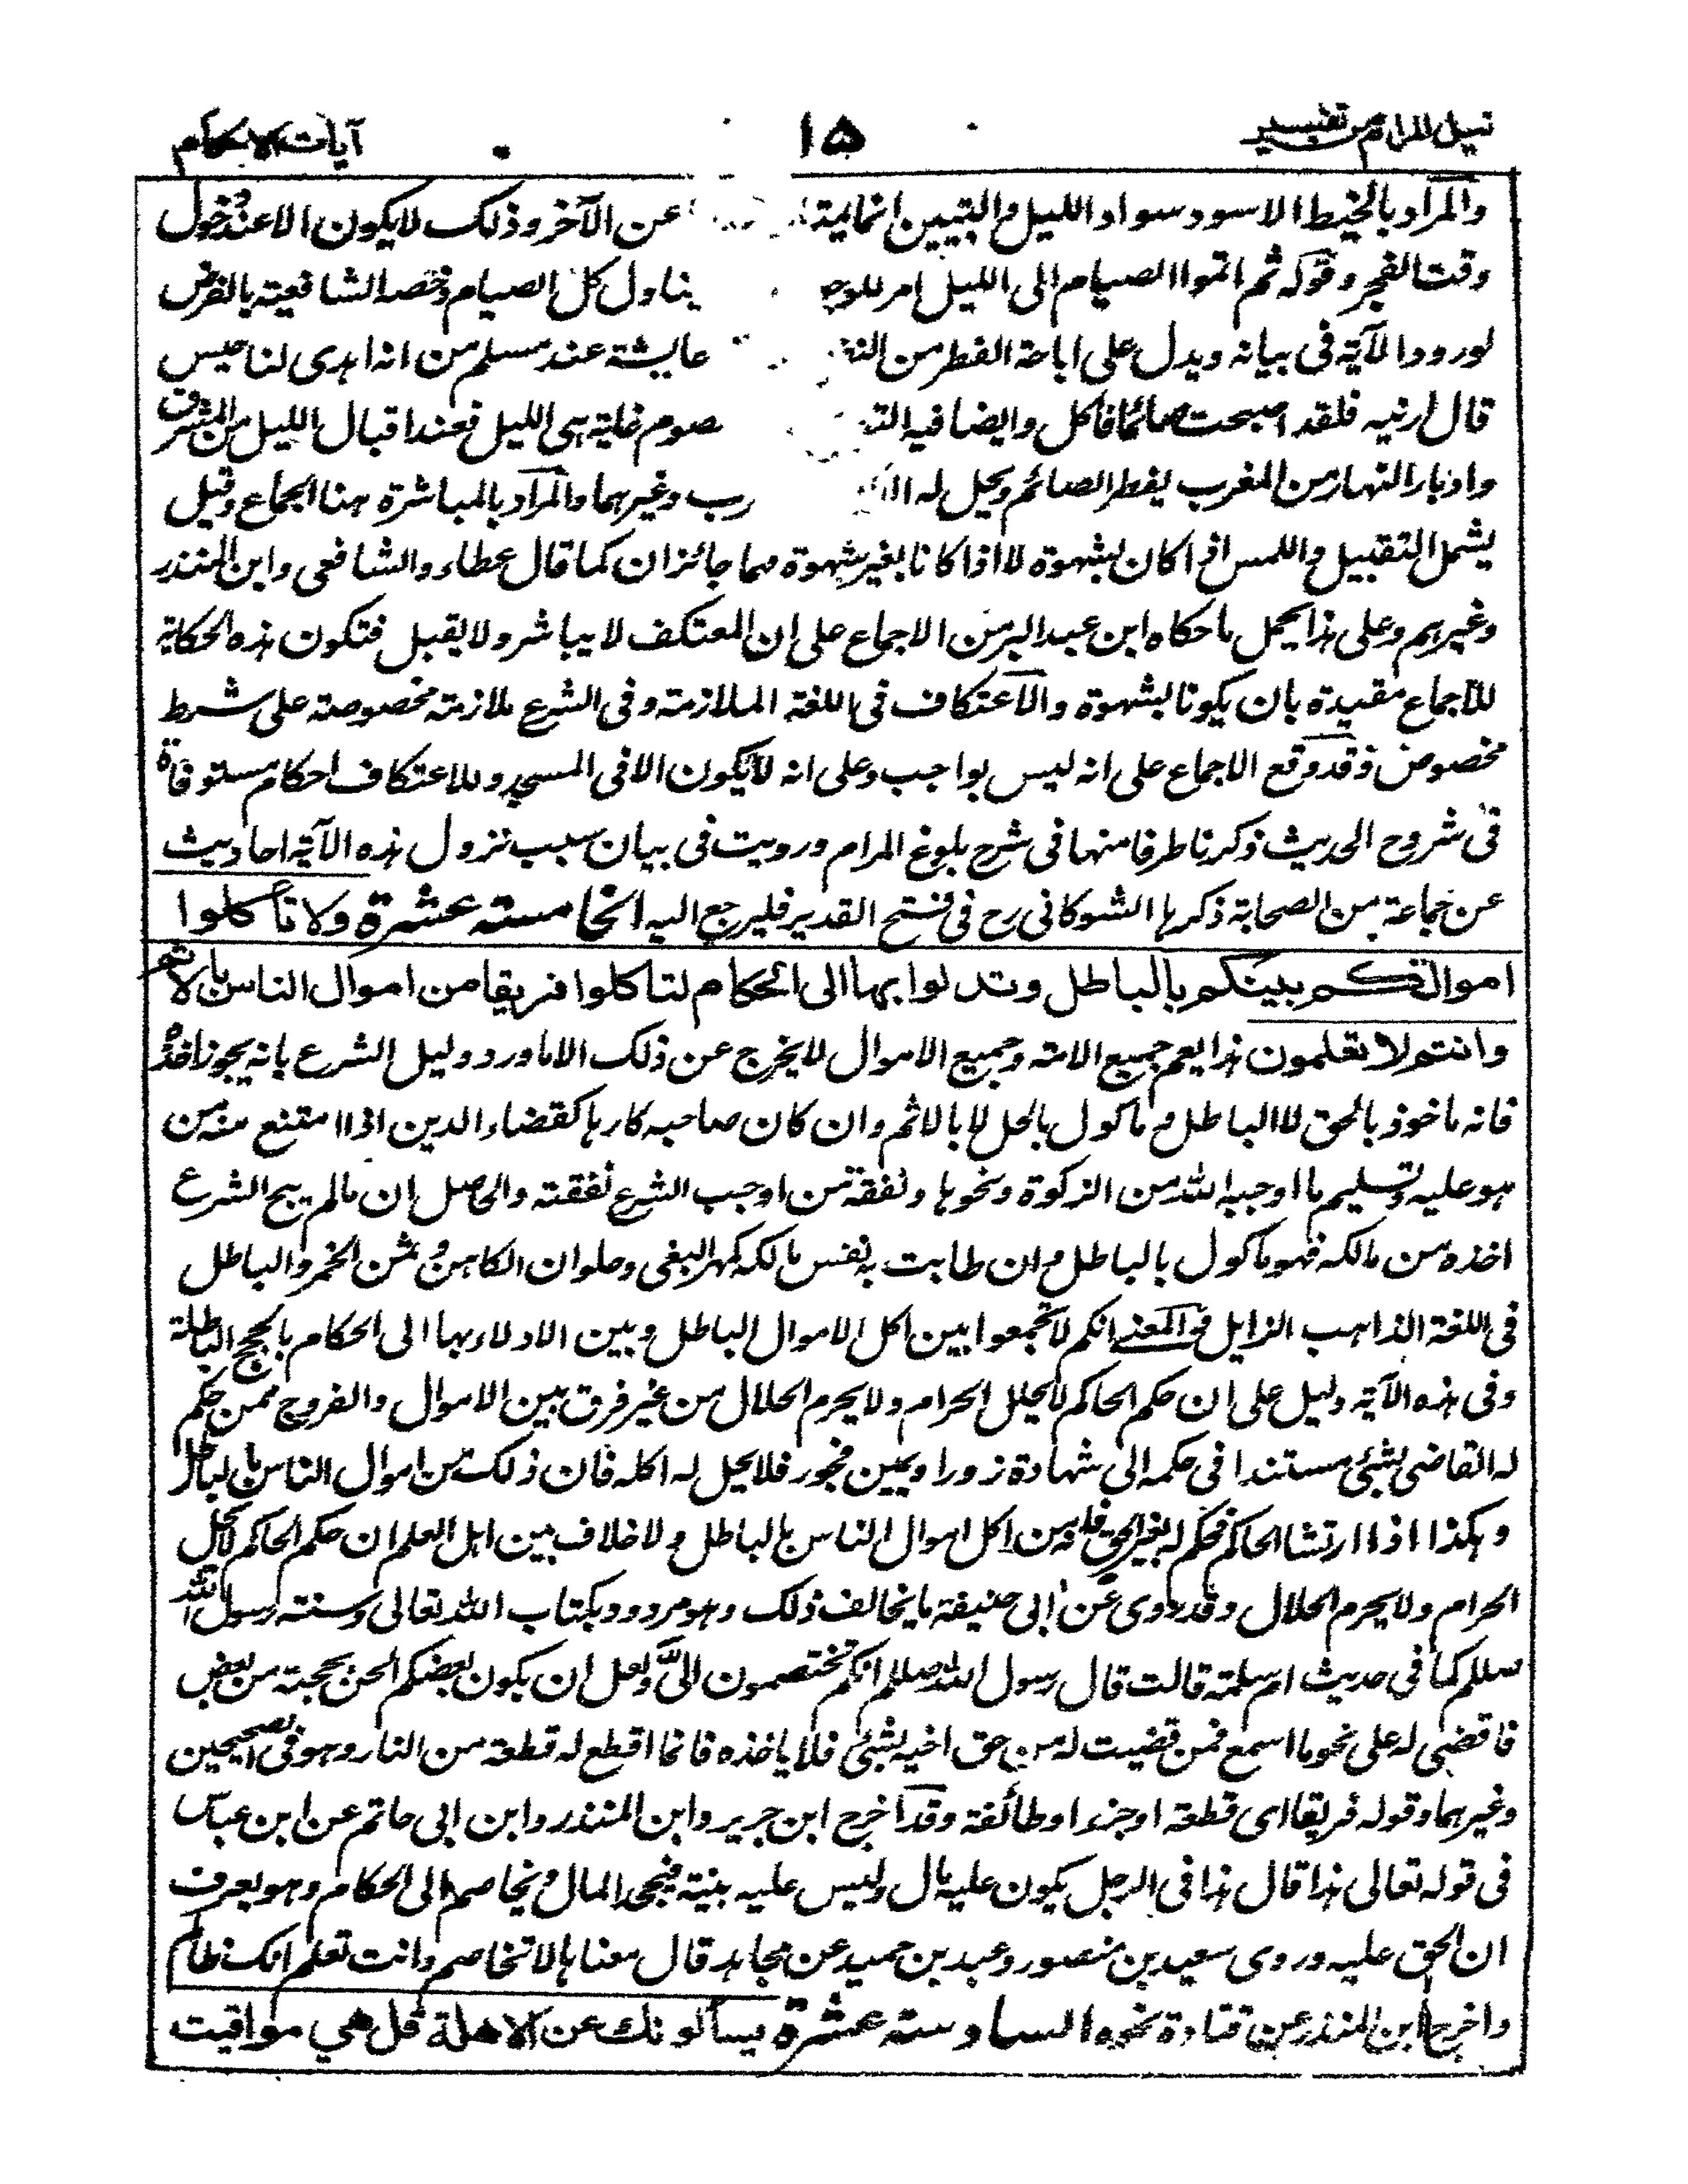 نيل المرام من تفسير ١٥ آيات الاحكام
والمراد بالخيط الاسود سواد الليل والتبيين ان عن الآخر وذلك لا يكون الا عند دخول
وقت الفجر وقوله ثم اتموا الصيام الى الليل امر للوجو يتناول كل الصيام وخصه الشافعية بالفرض
لورود الآية فى بيانه ويدل على اباحة الفطر من النفل عايشة عند مسلم من انه اهدى لنا حيس
قال ارنيه فلقد اصبحت صائما فاكل وايضا فيه صوم غاية هى الليل فعند اقبال الليل من المشرق
وادبار النهار من المغرب يفطر الصائم ويحل له رب وغيرهما والمراد بالمباشرة هنا الجماع وقيل
يشمل التقبيل واللمس اذا كان بشهوة لا اذا كانا بغير شهوة فهما جائزان كما قال عطاء والشافعى وابن المنذر
وغيرهم وعلى هذا يحمل ما حكاه ابن عبد البر من الاجماع على ان المعتكف لا يباشر ولا يقبل فتكون هذه الحكاية
للاجماع مقيدة بان يكونا بشهوة والاعتكاف فى اللغة الملازمة وفى الشرع ملازمة مخصوصة على شرط
مخصوص وقد وقع الاجماع على انه ليس بواجب وعلى انه لا يكون الا فى المسجد وللاعتكاف احكام مستوفاة
فى شروح الحديث ذكرنا طرفا منها فى شرح بلوغ المرام ورويت فى بيان سبب نزول هذه الآية احاديث
عن جماعة من الصحابة ذكرها الشوكانى رح فى فتح القدير فليرجع اليه الخامسة عشرة ولا تأكلوا
اموالكم بينكم بالباطل وتدلوا بها الى الحكام لتاكلوا فريقا من اموال الناس بالاثم
وانتم لا تعلمون هذا يعم جميع الامة وجميع الاموال لا يخرج عن ذلك الا ما ورد دليل الشرع بانه يجوز اخذه
فانه ماخوذ بالحق لا الباطل وماكول بالحل لا بالاثم وان كان صاحبه كارها كقضاء الدين اذا امتنع منه من
هو عليه وتسليم ما اوجبه الله من الزكوة ونحوها ونفقة من اوجب الشرع نفقته والحاصل ان مالم يبح الشرع
اخذه من مالكه فهو ماكول بالباطل وان طابت به نفس مالكه كمهر البغى وحلوان الكاهن وثمن الخمر والباطل
فى اللغة الذاهب الزايل والمعنى انكم لا تجمعوا بين اكل الاموال الباطل وبين الادلاء بها الى الحكام بالحجج الباطلة
وفى هذه الآية دليل على ان حكم الحاكم لا يحلل الحرام ولا يحرم الحلال من غير فرق بين الاموال والفروج فمن حكم
له القاضى بشئ مستندا فى حكمه الى شهادة زور او يمين فجور فلا يحل له اكله فان ذلك من اموال الناس بالباطل
وهكذا اذا ارتشا الحاكم فحكم له بغير الحق فانه من اكل اموال الناس بالباطل ولا خلاف بين اهل العلم ان حكم الحاكم لا يحل
الحرام ولا يحرم الحلال وقد روى عن ابى حنيفة ما يخالف ذلك وهو مردود بكتاب الله تعالى وسنة رسول الله
صللم كما فى حديث ام سلمة قالت قال رسول الله صللم انكم تختصمون الىّ ولعل ان يكون بعضكم الحن بحجته من بعض
فاقضى له على نحو ما اسمع فمن قضيت له من حق اخيه بشئ فلا ياخذه فانما اقطع له قطعة من النار وهو فى الصحيحين
وغيرهما وقوله فريقا اى قطعة او جزء او طائفة وقد اخرج ابن جرير وابن المنذر وابن ابى حاتم عن ابن عباس
فى قوله تعالى هذا قال هذا فى الرجل يكون عليه مال وليس عليه بينة فيجحد المال ويخاصم الى الحكام وهو يعرف
ان الحق عليه وروى سعيد بن منصور وعبد بن حميد عن مجاهد قال معناها لا تخاصم وانت تعلم انك ظالم
واخرج ابن المنذر عن قتادة نحوه السادسة عشرة يسألونك عن الاهلة قل هي مواقيت